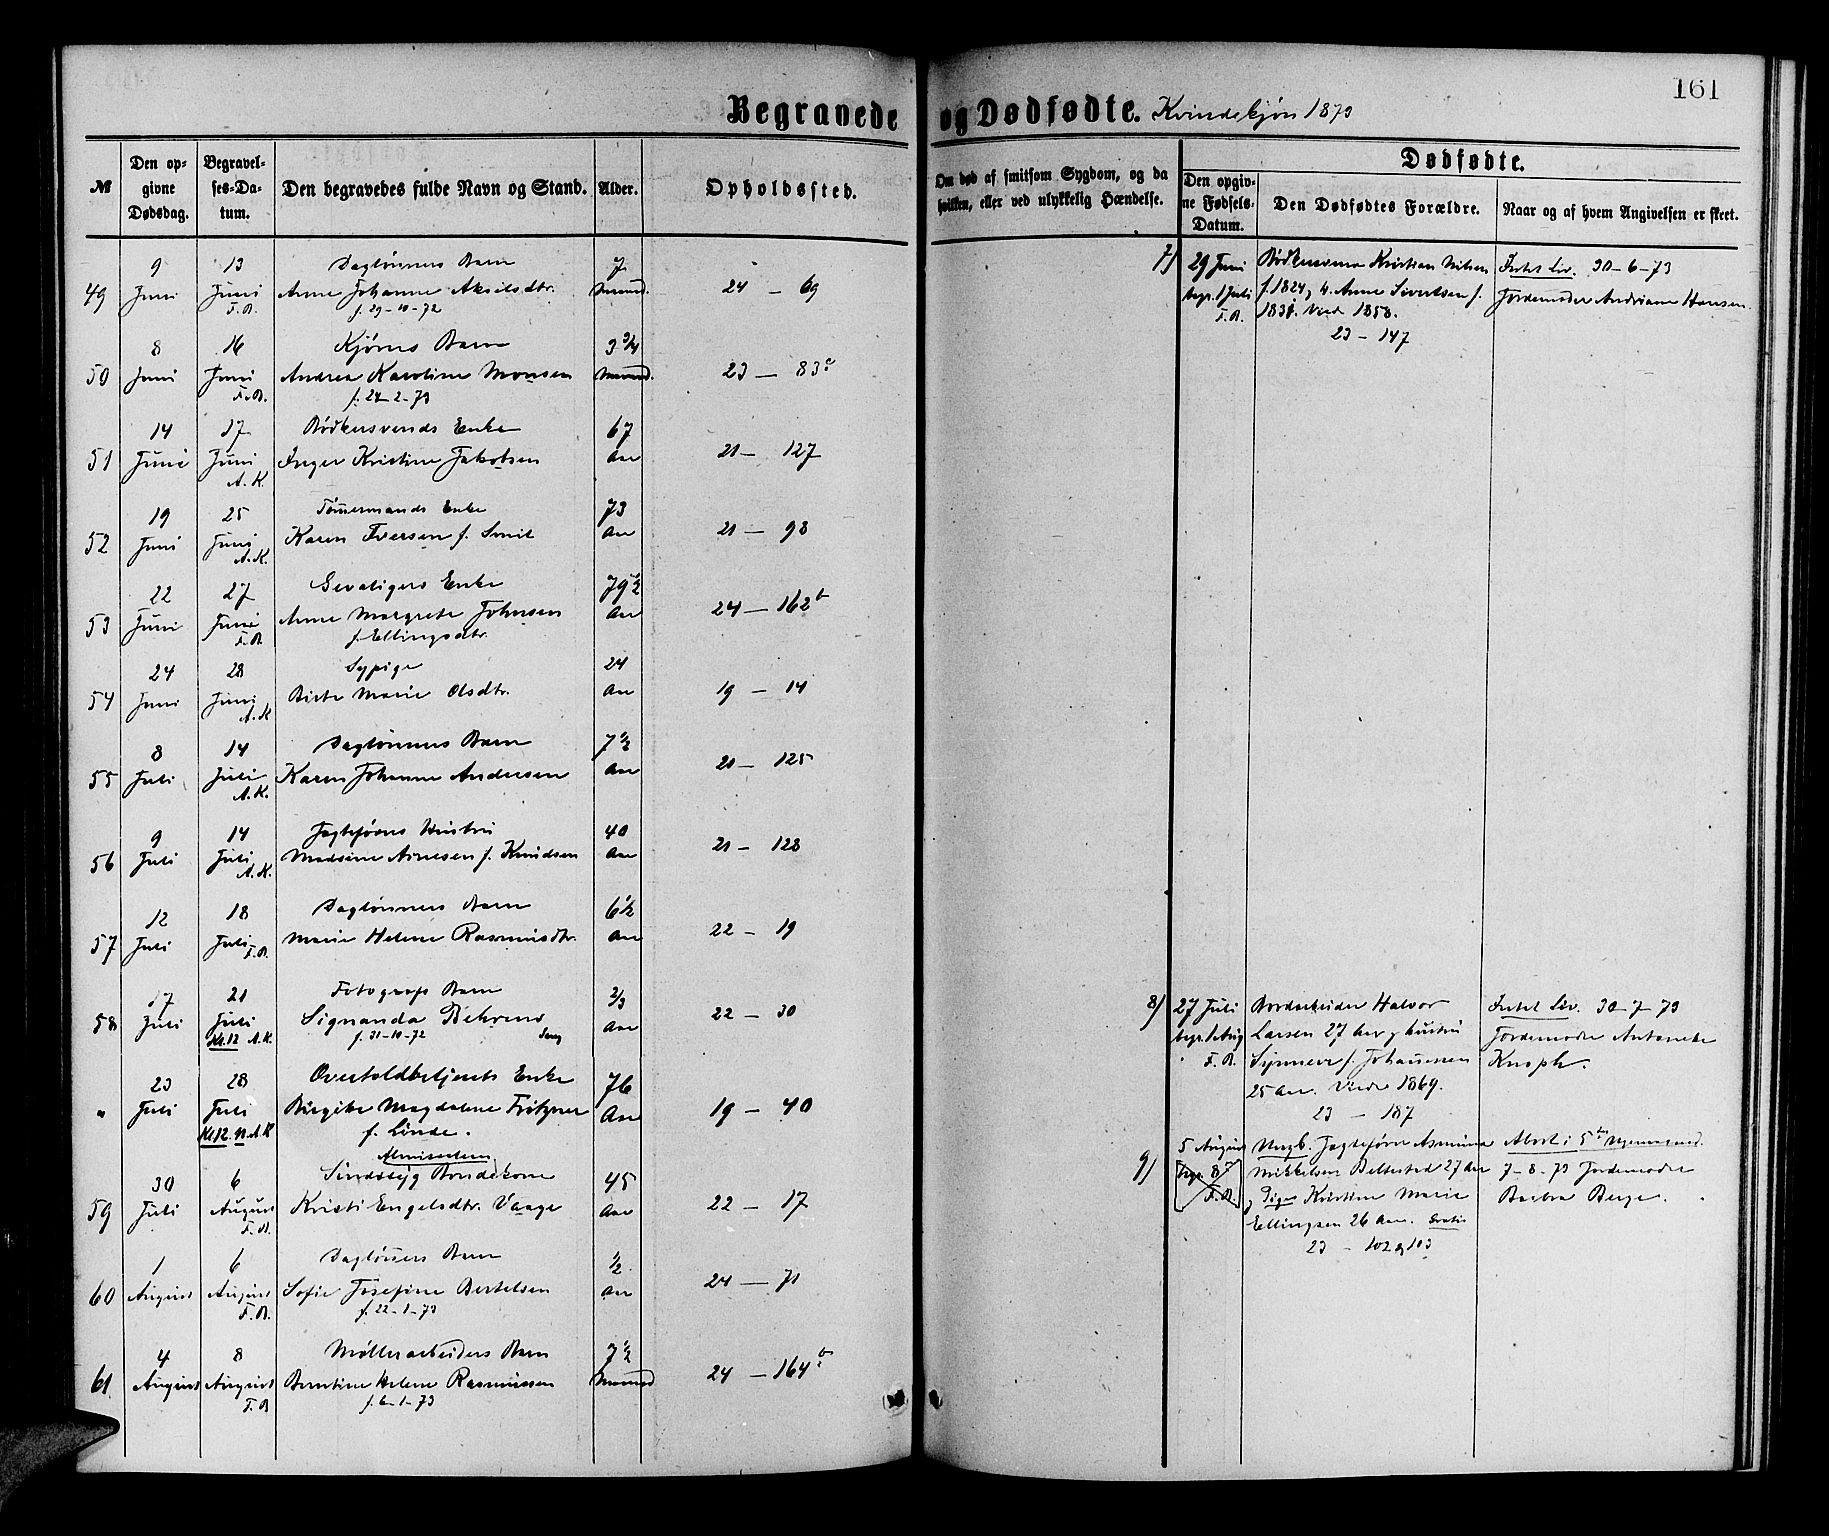 161
Begravede og Dødfødte. Kvindekjøn 1873
№
Den opgivne Dødsdag.
Begravelses-Datum.
Den begravedes fulde Navn og Stand.
Alder.
Opholdssted.
Om død af smitsom Sygdom, og da hvilken, eller ved ulykkelig Hændelse.
Dødfødte.
Den opgivne Fødsels-Datum.
Den Dødfødtes Forældre.
Naar og af hvem Angivelsen er skeet.
9 13 Daglønners Barn 7
49 Juni Juni Anne Johanne Akselsdtr. Maaned. 24 — 69
F.B. f. 29-10-72
8 16 Kjøres Barn 3 3/4
50 Juni Juni Andrea Karoline Monsen Maaned. 23 — 83
F.B. f. 24-2-73
14 17 Bødkersvends Enke 67
51 Juni Juni Inger Kristine Jakobsen Aar 21 — 127
A.K.
19 25 Tømmermands Enke 73
52 Juni Juni Karen Iversen f. Smit Aar 21 — 98
A.K.
22 27 Gevaltigers Enke 79 1/2
53 Juni Juni Anne Margrete Johnsen Aar 24 — 162b
F.B. f. Ellingsdtr.
24 28 Sypige 24
54 Juni Juni Birte Marie Olsdtr. Aar 19 — 14
A.K
8 14 Daglønners Barn 7 1/2
55 Juli Juli Karen Johanne Andersen Aar 21 — 125
A.K.
9 14 Jagtefører Hustru 40
56 Juli Juli Madsine Arnesen f. Knudsen Aar 21 — 128
A.K.
12 18 Daglønners Barn 6 1/2
57 Juli Juli Marie Helene Rasmusdtr. Aar 22 — 19
F.B.
17 21 Fotografs Barn 2/3
58 Juli Juli Signanda Behrens Aar 22 — 30
Kl.12 A.K. f. 31-10-72 Sang
23 28 Overtoldbetjents Enke 76
" Juli Juli Birgitte Magdalene Fritzner Aar 19 — 40
Kl.12. A.K f. Linde.
Almisselem
30 6 Sindssyg Bondekone 45
59 Juli August Kristi Engelsdtr. Vaage Aar 22 — 17
F.B.
1 6 Dagløners Barn 1/2
60 August August Sofie Josefine Bertelsen Aar 24 — 71
F.B. f. 22-1-73
4 8 Møllerarbeiders Barn 7 1/2
61. August August Berntine Helene Rasmussen Maaned 24 — 164b
F.B f. 6-1-73
7) 29 Juni Bødkersvend Kristian Nilsen Intet Liv. 30-6-73
begr. 1 Juli f. 1824, h. Anne Sivertsen f. Jordemoder Andriane Hansen.
F.B. 1831. Viede 1858.
23 — 147
8) 27 Juli Bordarbeider Halvor Intet Liv. 30-7-73
begr. 1 Aug Larsen 27 Aar og Hustru Jordemoder Antonette
F.B. Synneve f. Johannesen Knoph.
25 Aar. Viede 1869.
23 — 187
9) 5 August Ungk. Jagtefører Asmund Abort i 5te Svangerm.
begr. 8 Mikkelsen Beltested 27 Aar 7-8-73 Jordemoder
F.B. og Pige Kristine Marie Barbra Berge.
Ellingsen 26 Aar. Gratis
23 — 102 og 103